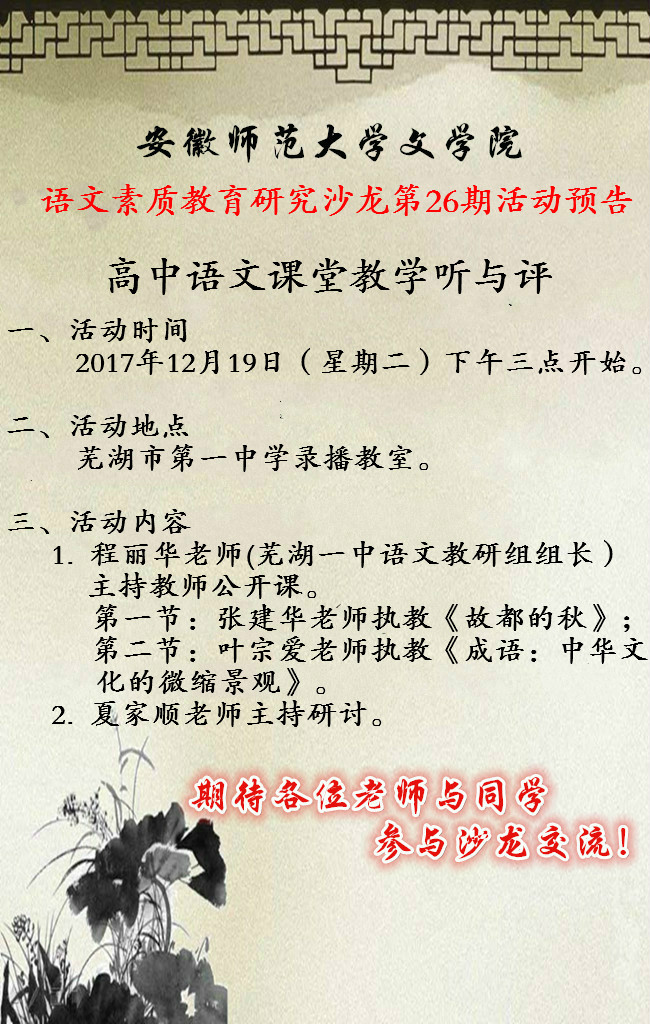 安徽师范大学文学院
语文素质教育研究沙龙第26期活动预告
高中语文课堂教学听与评
一、活动时间
2017年12月19日（星期二）下午三点开始。
二、活动地点
芜湖市第一中学录播教室。
三、活动内容
1. 程丽华老师(芜湖一中语文教研组组长）
主持教师公开课。
第一节：张建华老师执教《故都的秋》；
第二节：叶宗爱老师执教《成语：中华文
化的微缩景观》。
2. 夏家顺老师主持研讨。
期待各位老师与同学
参与沙龙交流！